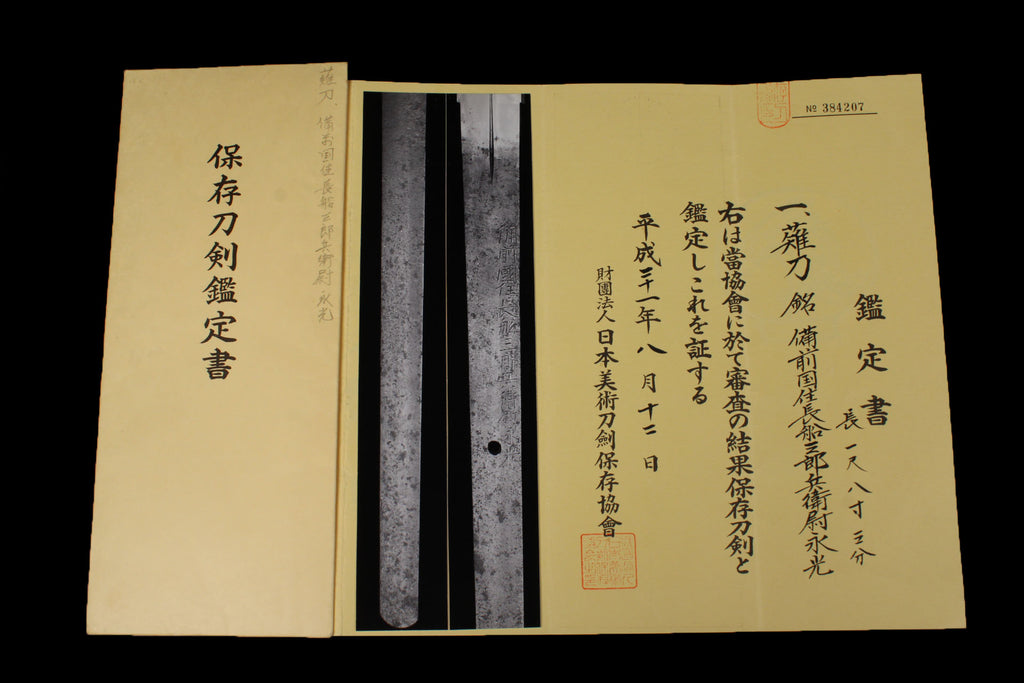 保存刀剣鑑定書
薙刀、備前国住長船三郎兵衛尉永光
№ 384207
鑑定書
長一尺八寸三分
一、薙刀 銘 備前国住長船三郎兵衛尉永光
右は當協會に於て審査の結果保存刀剣と
鑑定しこれを証する
平成二十一年八月十二日
財團法人日本美術刀劍保存協會